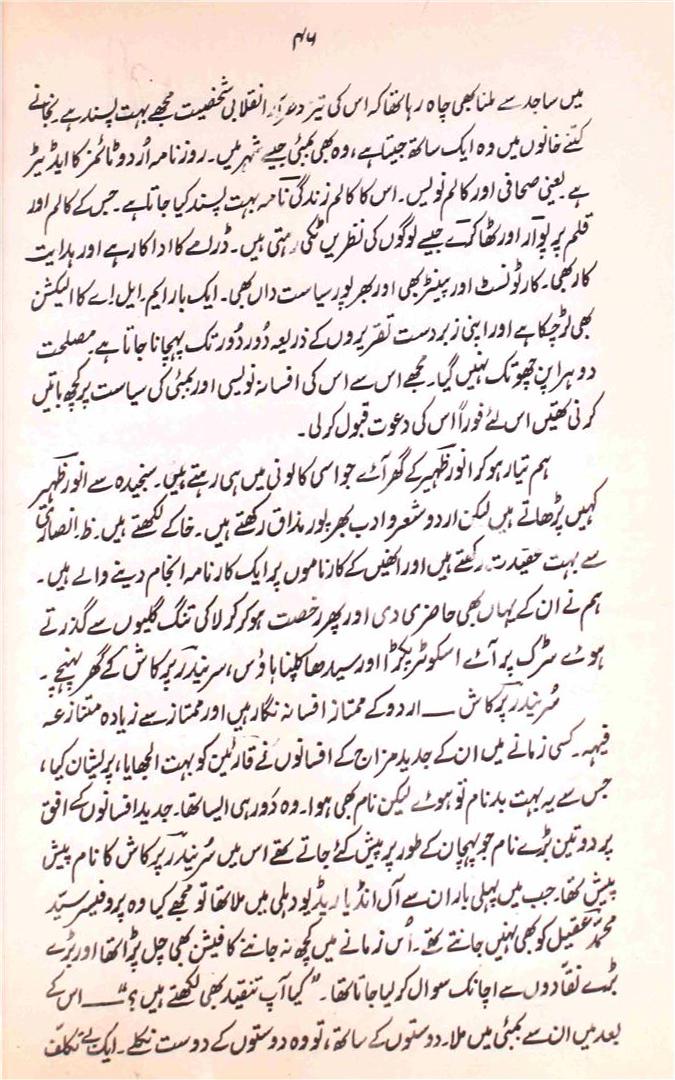 ۴۶
میں ساجد سے ملنا بھی چاہ رہا تھا کہ اس کی تیز انقلابی شخصیت مجھے بہت پسند ہے۔ نجانے
کتنے خانوں میں وہ ایک ساتھ جیتا ہے، وہ بھی بمبئی جیسے شہر میں۔ روزنامہ اُردو ٹائمز کا ایڈیٹر
ہے یعنی صحافی اور کالم نویس۔ اس کا کالم زندگی نامہ بہت پسند کیا جاتا ہے۔ جس کے کالم اور
قلم پر پوار اور ٹھاکرے جیسے لوگوں کی نظریں ٹکی رہتی ہیں۔ ڈرامے کا اداکار ہے اور ہدایت
کار بھی۔ کارٹونسٹ اور پینٹر بھی اور بھرپور سیاست داں بھی۔ ایک بار ایم۔ایل۔اے کا الیکشن
بھی لڑ چکا ہے اور اپنی زبردست تقریروں کے ذریعہ دُور دُور تک پہچانا جاتا ہے۔ مصلحت
دوہرا پن چھو تک نہیں گیا۔ مجھے اس سے اس کی افسانہ نویسی اور بمبئی کی سیاست پر کچھ باتیں
کرنی تھیں اس لئے فوراً اس کی دعوت قبول کرلی۔
ہم تیار ہوکر انور ظہیر کے گھر آئے جو اسی کالونی میں ہی رہتے ہیں۔ سنجیدہ سے انور ظہیر
کہیں پڑھاتے ہیں لیکن اردو شعر و ادب بھرپور مذاق رکھتے ہیں۔ خاکے لکھتے ہیں۔ ظ۔ انصاری
سے بہت عقیدت رکھتے ہیں اور انھیں کے کارناموں پر ایک کارنامہ انجام دینے والے ہیں۔
ہم نے ان کے یہاں بھی حاضری دی اور پھر رخصت ہوکر کرلا کی تنگ گلیوں سے گذرتے
ہوئے سڑک پر آئے اسکوٹر پکڑا اور سیدھا کلپنا ہاؤس، سریندر پرکاش کے گھر پہنچے۔
سُریندر پرکاش ــــ اردو کے ممتاز افسانہ نگار ہیں اور ممتاز سے زیادہ متنازعہ
فیہہ۔ کسی زمانے میں ان کے جدید مزاج کے افسانوں نے قارئین کو بہت الجھایا، پریشان کیا،
جس سے یہ بہت بدنام تو ہوئے لیکن نام بھی ہوا۔ وہ دَور ہی ایسا تھا۔ جدید افسانوں کے افق
پر دو تین بڑے نام جو پہچان کے طور پر پیش کئے جاتے تھے اس میں سُریندر پرکاش کا نام پیش
پیش تھا۔ جب میں پہلی بار ان سے آل انڈیا ریڈیو دہلی میں ملا تھا تو مجھے کیا وہ پروفیسر سیّد
محمد عقیل کو بھی نہیں جانتے تھے۔ اُس زمانے میں کچھ نہ جاننے کا فیشن بھی چل پڑا تھا اور بڑے
بڑے نقّادوں سے اچانک سوال کرلیا جاتا تھا۔ ”کیا آپ تنقید بھی لکھتے ہیں؟“ ــــ اس کے
بعد میں ان سے بمبئی میں ملا۔ دوستوں کے ساتھ، تو وہ دوستوں کے دوست نکلے۔ ایک بے تکلّف